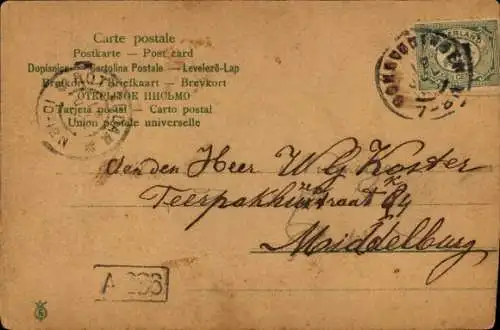 Carte postale
Postkarte — Post card
Dopisnice — Cartolina Postale — Levelező-Lap
Brefkort — Briefkaart — Brevkort
ОТКРЫТОЕ ПИСЬМО
Tarjeta postal — Carto postal
Union postale universelle
ROTTERDAM
10-12N
7-8
CENT
Aan den Heer W G Koster
Teerpakhuisstraat K 84
Middelburg